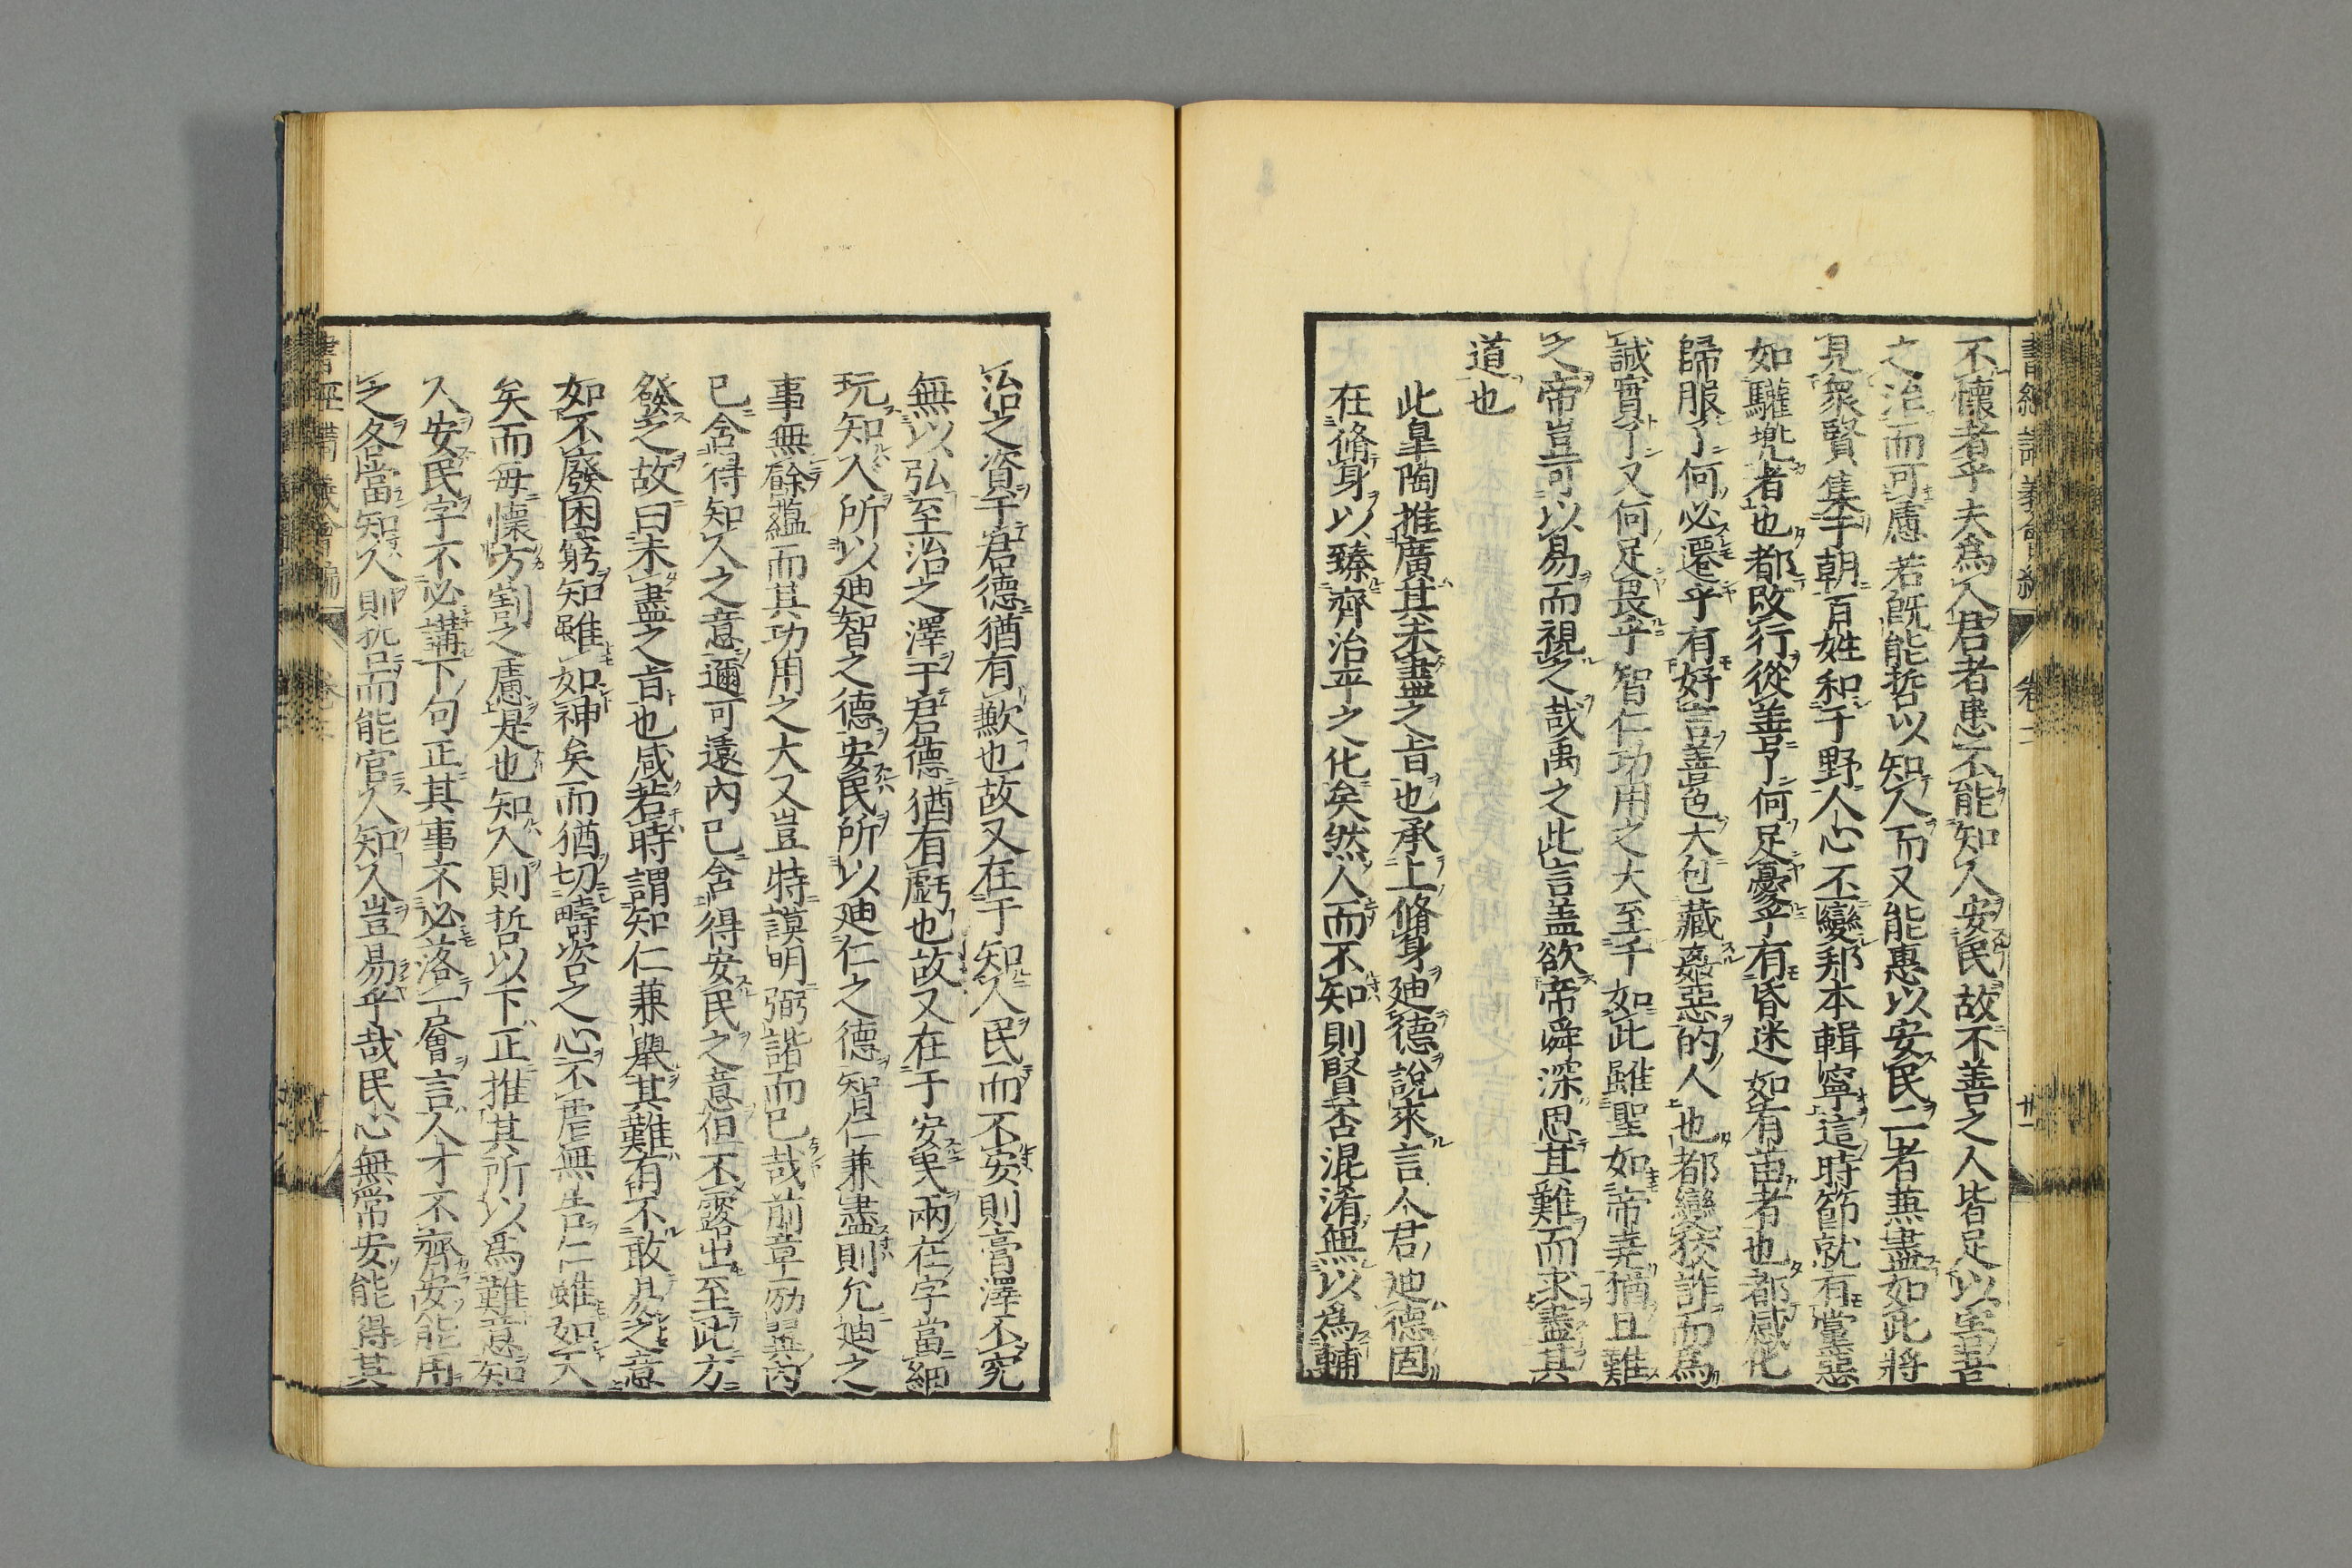 不懷者乎夫為人君者患不能知人安民故不善之人皆足以害吾
之治而可慮若既能哲以知人而又能惠以安民二者兼盡如此將
見衆賢集于朝百姓和于野人心丕變邦本輯寧這時節就有黨惡
如驩兜者也都改行從善了何足憂乎有昏迷如有苗者也都感化
歸服了何必遷乎有好言善色大包藏姦惡的人也都變狡詐而為
誠實了又何足畏乎智仁功用之大至于如此雖聖如帝堯猶且難
之帝豈可以易而視之哉禹之此言盖欲帝舜深思其難而求盡其
道也
此皐陶推廣其未盡之旨也承上脩身迪德說來言人君迪德固
在脩身以臻齊治平之化矣然人而不知則賢否混淆無以為輔
治之資于君德猶有歉也故又在于知人民而不安則膏澤不究
無以弘至治之澤于君德猶有虧也故又在于安民兩在字當細
玩知人所以廸智之德安民所以廸仁之德智仁兼盡則允廸之
事無餘蘊而其功用之大又豈特謨明弼諧而已哉前章勵翼內
已含得知人之意邇可遠內已含得安民之意但不露出至此方
發之故曰未盡之旨也咸若時謂知仁兼舉其難有不敢易之意
如不廢困窮知雖如神矣而猶切疇咨之心不虐無告仁雖如天
矣而每懷方割之慮是也知人則哲以下正推其所以為難意知
人安民字不必講下句正其事不必落一層言人才不齊安能用
之各當知人則哲而能官人知人豈易乎哉民心無常安能得其
書經講義會編
卷二
廿一